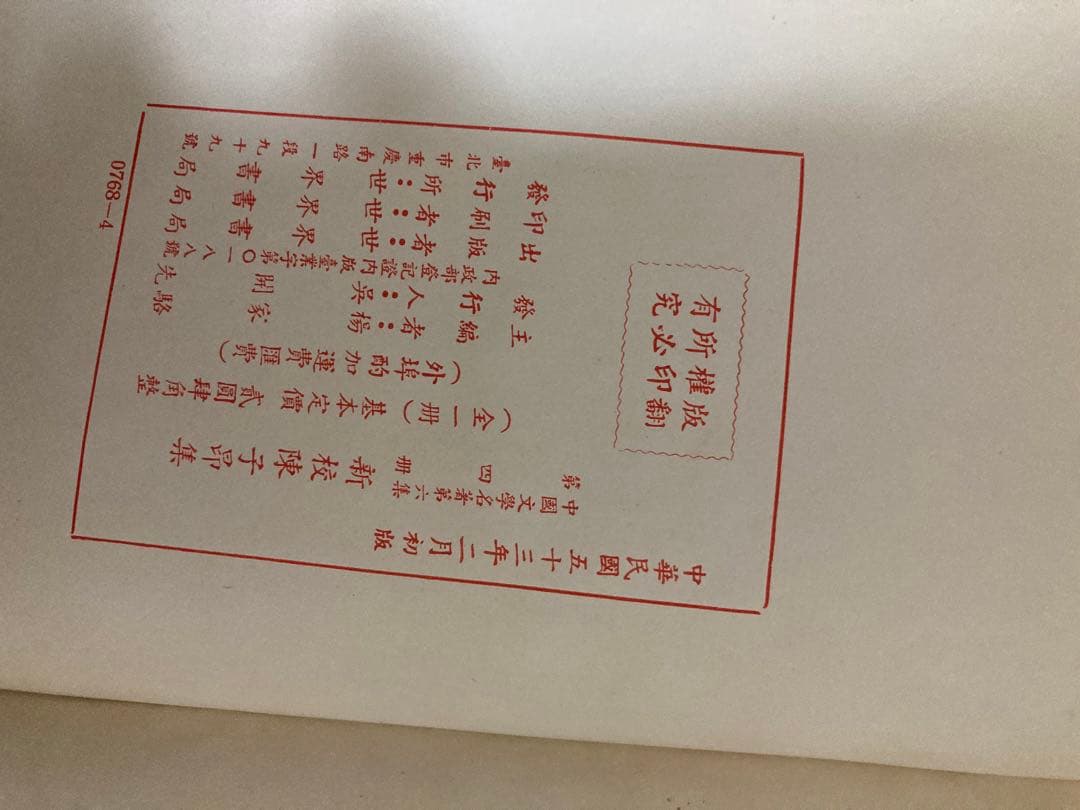 中華民國五十三年二月初版
中國文學名著第六集
第四册
新校陳子昂集
(全一册)基本定價貳圓肆角整
(外埠酌加運費匯費)
版權所有
翻印必究
主編者：楊家駱
發行人：吳開先
內政部登記證內版臺業字第〇一八八號
出版者：世界書局
印刷者：世界書局
發行所：世界書局
臺北市重慶南路一段九十九號
0768—4